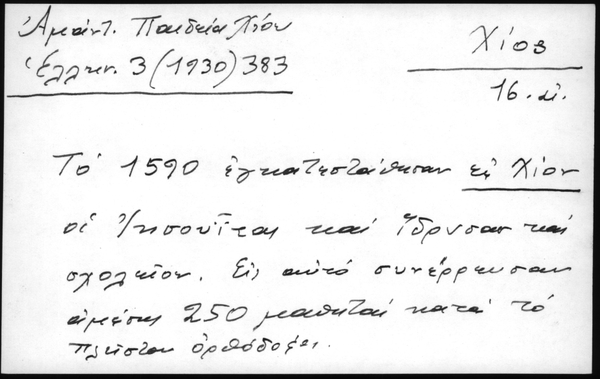 Ἀμάντ. Παιδεία Χίου
Ἑλλην. 3 (1930) 383
Χίος
16. αἰ.
Τό 1590 ἐγκατεστάθησαν εἰς Χίον
οἱ Ἰησουῖται καί ἵδρυσαν καί
σχολεῖον. Εἰς αὐτό συνέρρευσαν
ἀμέσως 250 μαθηταί κατά τό
πλεῖστον ὀρθόδοξοι.